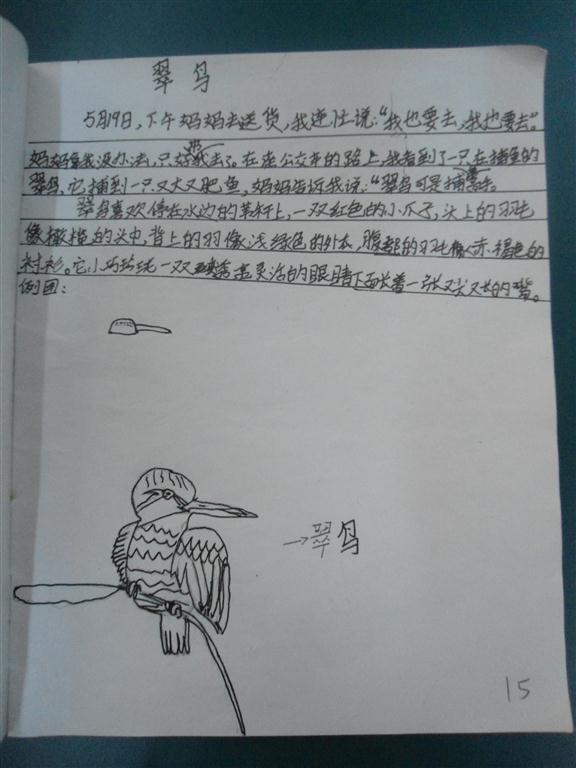 翠鸟
5月19日,下午妈妈去送货,我连忙说:“我也要去,我也要去”。
妈妈拿我没办法,只好带我去了。在走公交车的路上,我看到了一只在捕鱼的
翠鸟,它捕到一只又大又肥鱼,妈妈告诉我说:“翠鸟可是捕鱼高手。
翠鸟喜欢停在水边的苇秆上,一双红色的小爪子,头上的羽毛
像橄榄色的头巾,背上的羽像浅绿色的外衣,腹部的羽毛像赤褐色的
衬衫。它小巧玲珑一双透亮灵活的眼睛下面长着一张又尖又长的嘴。
例图:
→翠鸟
15